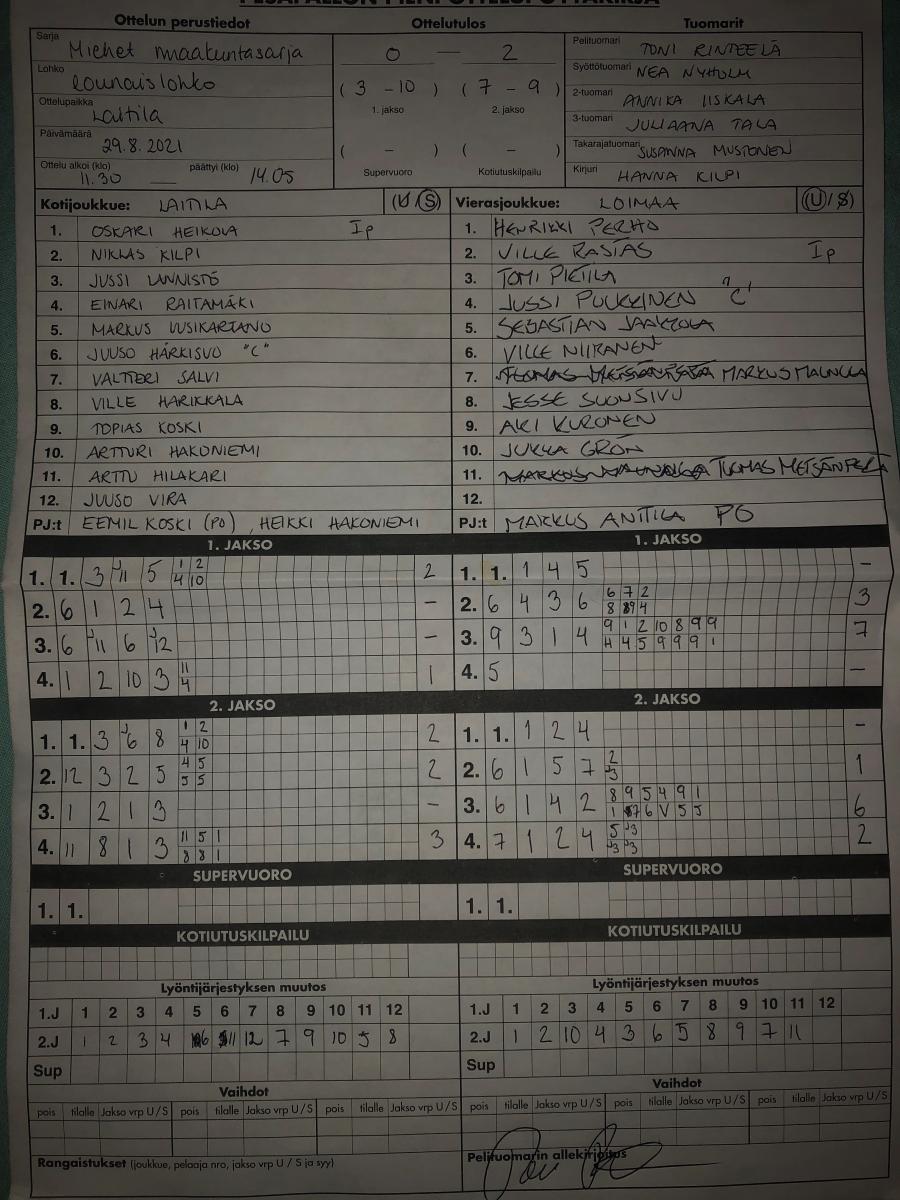 PESÄPALLON PIENI OTTELUPÖYTÄKIRJA
Ottelun perustiedot
Ottelutulos
Tuomarit
Sarja Miehet maakuntasarja
0 — 2
Pelituomari TONI RINTEELÄ
Lohko Lounaislohko
( 3 - 10 ) ( 7 - 9 )
Syöttötuomari NEA NYHOLM
1. jakso 2. jakso
2-tuomari ANNIKA IISKALA
Ottelupaikka Laitila
3-tuomari JULIAANA TALA
Päivämäärä 29.8.2021
( - ) ( - )
Takarajatuomari SUSANNA MUSTONEN
Ottelu alkoi (klo) 11.30 — päättyi (klo) 14.05
Supervuoro Kotiutuskilpailu
Kirjuri HANNA KILPI
Kotijoukkue: LAITILA (U/S)
Vierasjoukkue: LOIMAA (U/S)
1. OSKARI HEIKOLA Ip
1. HENRIKKI PERHO
2. NIKLAS KILPI
2. VILLE RASIAS Ip
3. JUSSI LANNISTÖ
3. TOMI PIETILA
4. EINARI RAITAMÄKI
4. JUSSI PUUKKINEN "C"
5. MARKUS UUSIKARTANO
5. SEBASTIAN JAAKKOLA
6. JUUSO HÄRKISUO "C"
6. VILLE NIIRANEN
7. VALTTERI SALVI
7. MARKUS MAUNULA
8. VILLE HARIKKALA
8. JESSE SUONSIVU
9. TOPIAS KOSKI
9. AKI KURONEN
10. ARTTURI HAKONIEMI
10. JUKKA GRÖN
11. ARTTU HILAKARI
11. TUOMAS METSÄNPELTÄ
12. JUUSO VIRA
12.
PJ:t EEMIL KOSKI (PO), HEIKKI HAKONIEMI
PJ:t MARKUS ANTTILA PO
1. JAKSO
1. JAKSO
1. 1. 3 J11 5 1 2 2
4 10
1. 1. 1 4 5 –
2. 6 1 2 4 –
2. 6 4 3 6 6 7 2 3
8 4
3. 6 J11 6 J12 –
3. 9 3 1 4 9 1 2 10 8 9 9 7
4 5 9 9 9 1
4. 1 2 10 3 11 1
4
4. 5 –
2. JAKSO
2. JAKSO
1. 1. 3 J6 8 1 2 2
4 10
1. 1. 1 2 4 –
2. 12 3 2 5 4 5 2
5 5
2. 6 1 5 7 2 1
J3
3. 1 2 1 3 –
3. 6 1 4 2 8 9 5 4 9 1 6
1 6 V 5 5
4. 11 8 1 3 11 5 1 3
8 8 1
4. 7 1 2 4 5 J3 2
J3 J3
SUPERVUORO
SUPERVUORO
1. 1.
1. 1.
KOTIUTUSKILPAILU
KOTIUTUSKILPAILU
Lyöntijärjestyksen muutos
Lyöntijärjestyksen muutos
1.J 1 2 3 4 5 6 7 8 9 10 11 12
1.J 1 2 3 4 5 6 7 8 9 10 11 12
2.J 1 2 3 4 6 11 12 7 9 10 5 8
2.J 1 2 10 4 3 6 5 8 9 7 11
Sup
Sup
Vaihdot
Vaihdot
pois tilalle Jakso vrp U/S pois tilalle Jakso vrp U/S pois tilalle Jakso vrp U/S
pois tilalle Jakso vrp U/S pois tilalle Jakso vrp U/S pois tilalle Jakso vrp U/S
Rangaistukset (joukkue, pelaaja nro, jakso vrp U / S ja syy)
Pelituomarin allekirjoitus